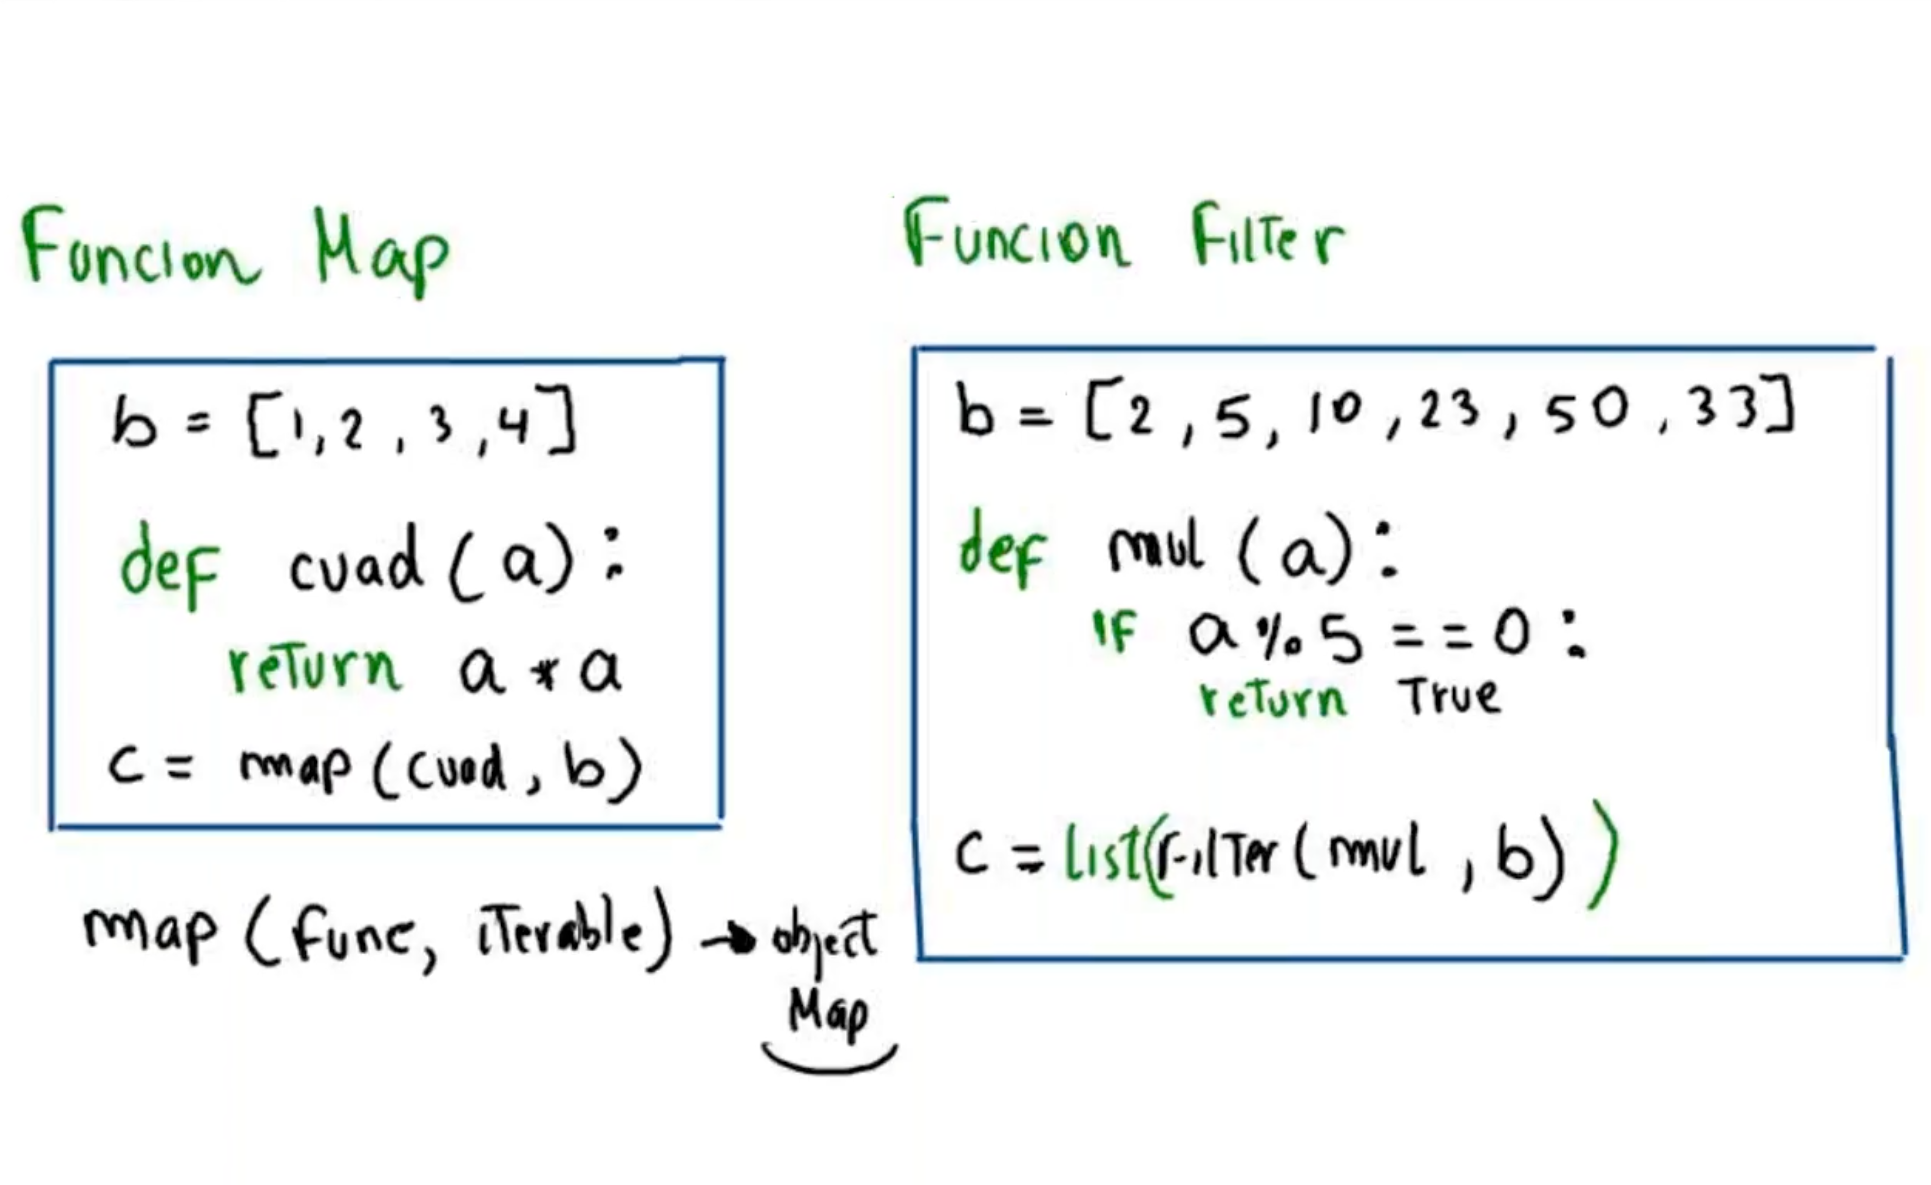 Funcion Map
b = [1, 2, 3, 4]
def cuad (a):
return a * a
c = map (cuad, b)
map (func, iterable) → object
Map
Funcion Filter
b = [2, 5, 10, 23, 50, 33]
def mul (a):
if a % 5 == 0 :
return True
c = list(filter (mul, b))